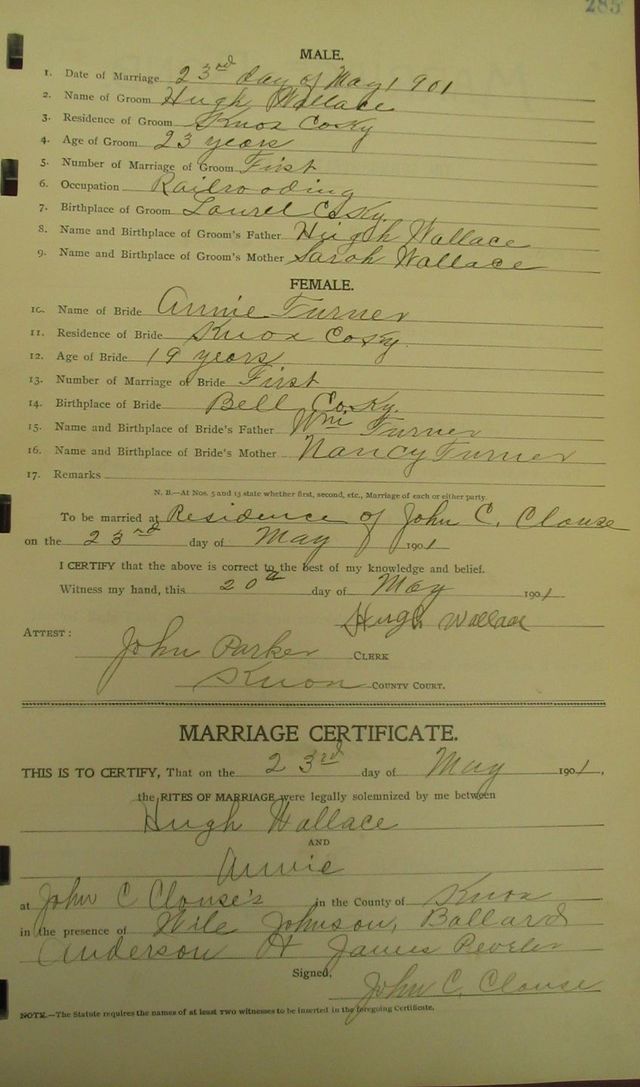 285
MALE.
1. Date of Marriage 23rd day of May 1901
2. Name of Groom Hugh Wallace
3. Residence of Groom Knox Co Ky
4. Age of Groom 23 years
5. Number of Marriage of Groom First
6. Occupation Railroading
7. Birthplace of Groom Laurel Co Ky.
8. Name and Birthplace of Groom's Father Hugh Wallace
9. Name and Birthplace of Groom's Mother Sarah Wallace
FEMALE.
10. Name of Bride Annie Turner
11. Residence of Bride Knox Co Ky.
12. Age of Bride 19 years
13. Number of Marriage of Bride First
14. Birthplace of Bride Bell Co. Ky.
15. Name and Birthplace of Bride's Father Wm Turner
16. Name and Birthplace of Bride's Mother Nancy Turner
17. Remarks
N. B.—At Nos. 5 and 13 state whether first, second, etc., Marriage of each or either party.
To be married at Residence of John C. Clouse
on the 23rd day of May 1901
I CERTIFY that the above is correct to the best of my knowledge and belief.
Witness my hand, this 20th day of May 1901
Hugh Wallace
ATTEST:
John Parker CLERK
Knox COUNTY COURT.
MARRIAGE CERTIFICATE.
THIS IS TO CERTIFY, That on the 23rd day of May 1901,
the RITES OF MARRIAGE were legally solemnized by me between
Hugh Wallace
AND
Annie
at John C Clouse's in the County of Knox
in the presence of Wile Johnson, Ballard
Anderson James
Signed, John C. Clouse
NOTE.—The Statute requires the names of at least two witnesses to be inserted in the foregoing Certificate.